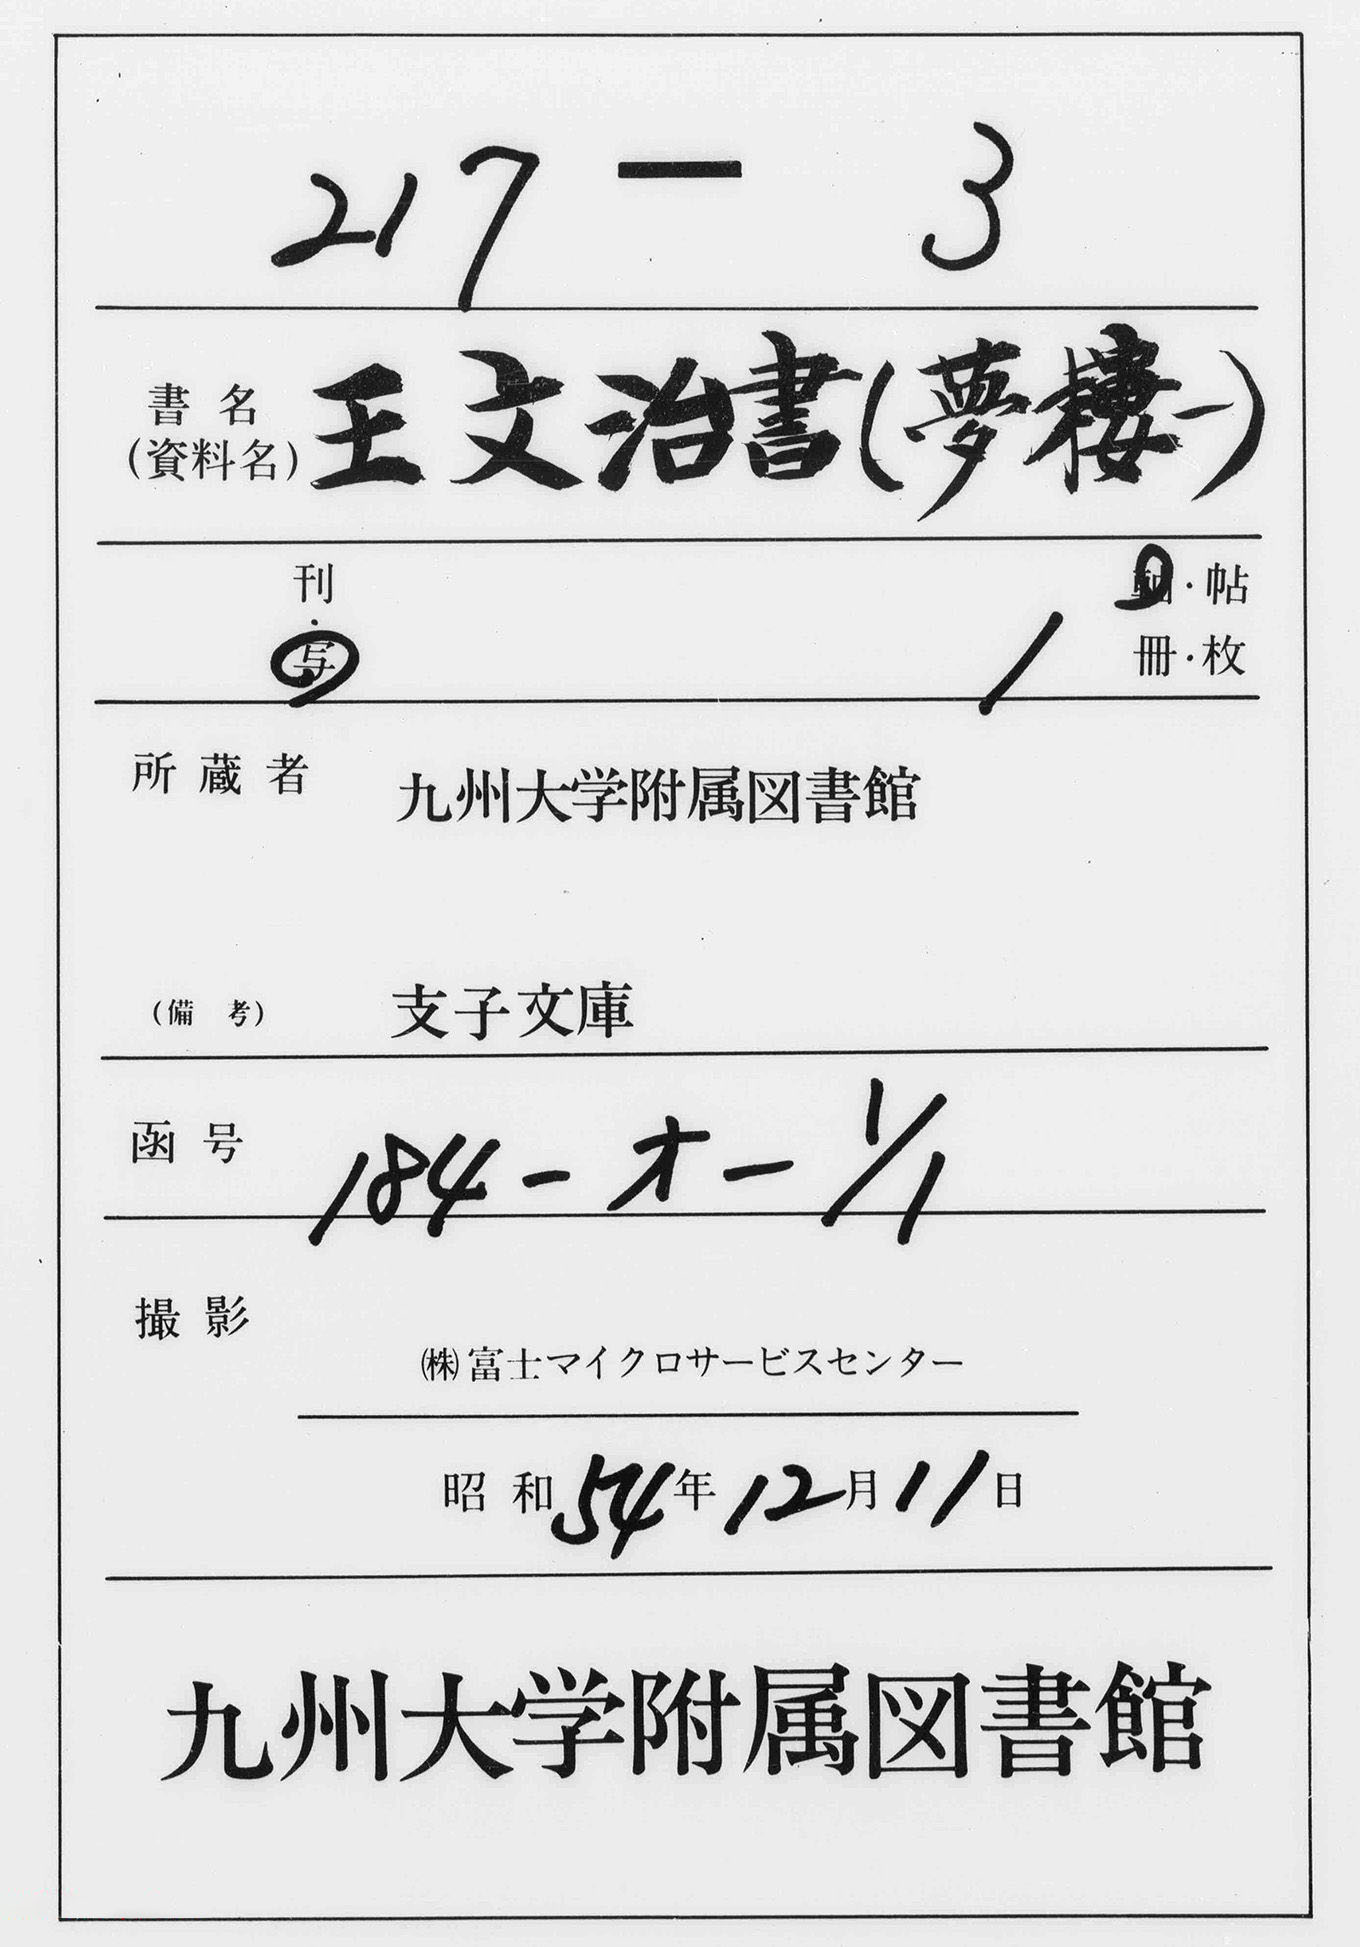 217 — 3
書名
(資料名) 王文治書(夢樓一)
刊
・
写
軸・帖
1 冊・枚
所蔵者 九州大学附属図書館
(備考) 支子文庫
函号 184-オ-1/1
撮影
㈱富士マイクロサービスセンター
昭和54年12月11日
九州大学附属図書館